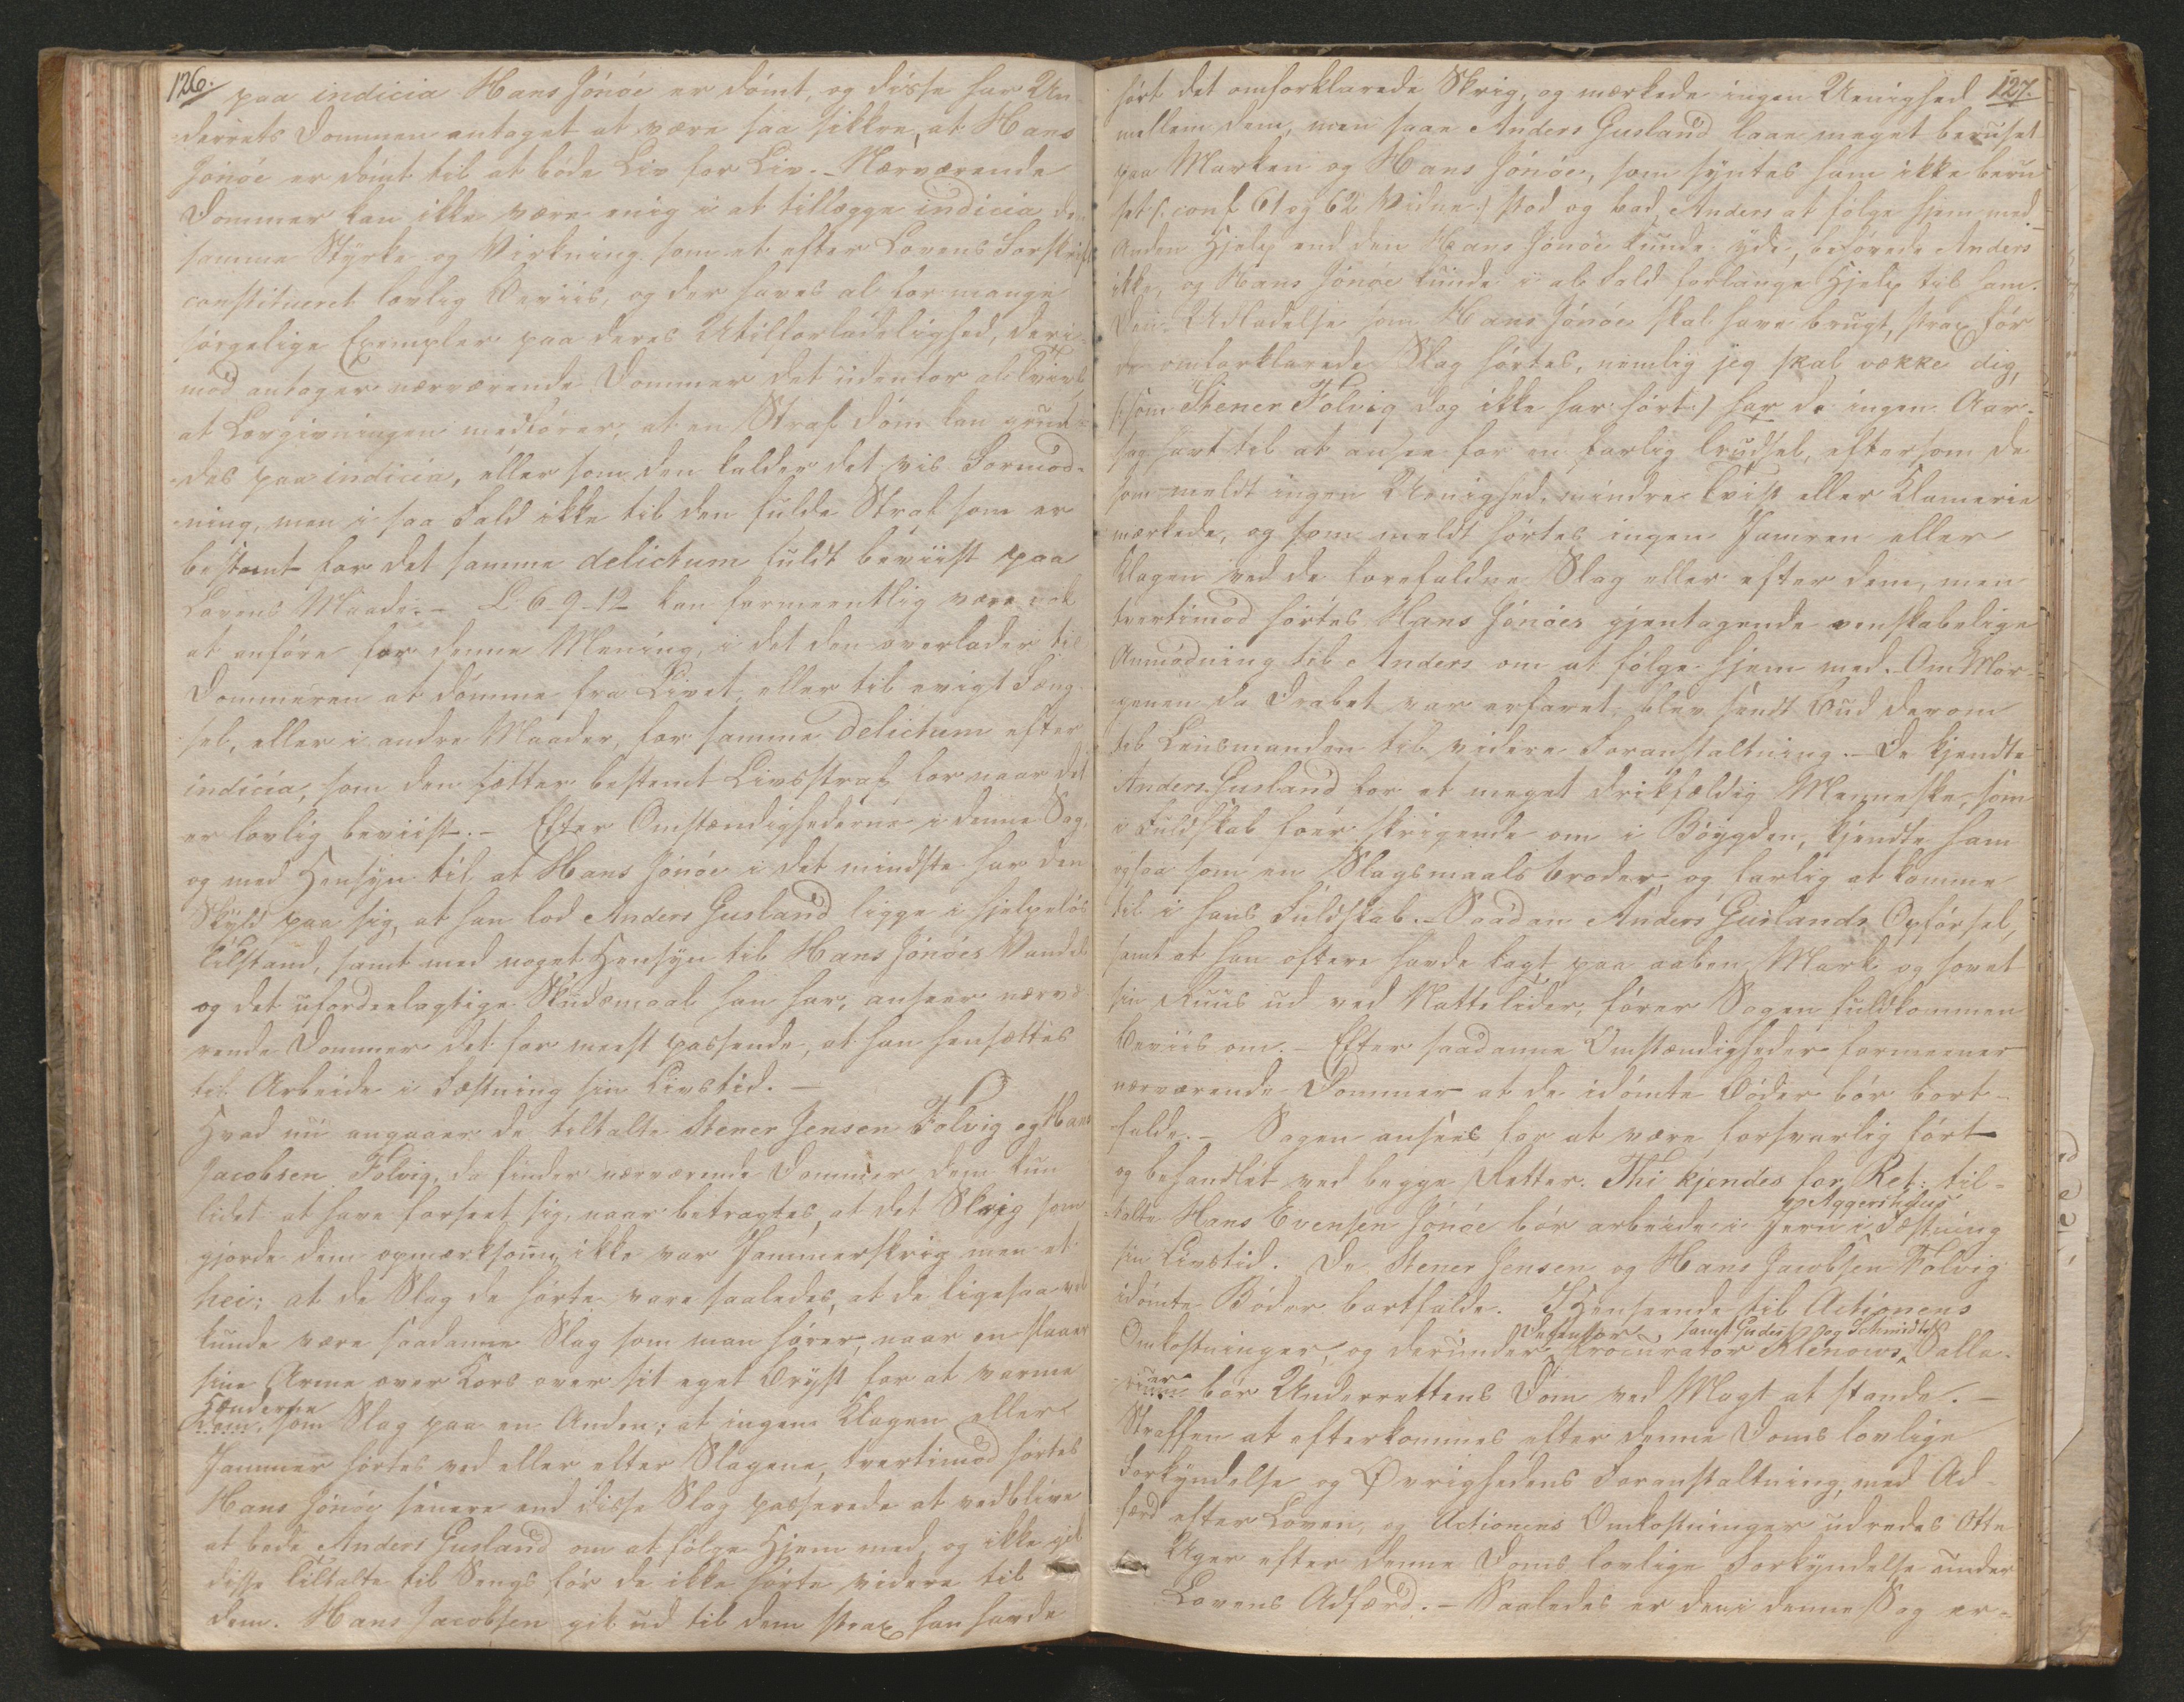 126.
paa indicia Hans Jónóe er dómt, og disse har Un-
derrets Dommen antaget at være saa sikkre, at Hans
Jónóe er dómt til at bóde Liv for Liv. - Nærværende
Dommer kan ikke være enig i at tillægge indicia den
samme Styrke og Virkning som et efter Lovens Forskrift
constitueret lovlig Beviis, og der haves al for mange
sórgelige Exempler paa deres Utilforladelighed, deri-
mod antager nærværende Dommer det udenfor al Tvivl,
at Lovgivningen medfórer, at en Straf Dom kan grun-
des paa indicia, eller som den kalder det vis Formod-
ning, men i saa Fald ikke til den fulde Straf som er
bestemt for det samme delictum fuldt beviist paa
Lovens Maade. - L 6-9-12 kan formeentlig være nok
at anfóre for denne Mening, i det den overlader til
Dommeren at dómme fra Livet, eller til evigt Fæng-
sel, eller i andre Maader, for samme delictum efter
indicia, som den sætter bestemt Livsstraf for naar det
er lovlig beviist. - Efter Omstændighederne i denne Sag,
og med Hensyn til at Hans Jónóe i det mindste har den
Skyld paa sig, at han lod Anders Gusland ligge i hjelpelós
Tilstand, samt med noget Hensyn til Hans Jónóes Vandel
og det ufordeelagtige Skudsmaal han har, anseer nærvæ-
rende Dommer det for meest passende, at han hensættes
til Arbeide i Fæstning sin Livstid. -
Hvad nu angaaer de tiltalte Stener Jensen Folvig og Hans
Jacobsen Folvig, da finder nærværende Dommer dem kun
lidet at have forseet sig, naar betragtes, at det Skrig som
gjorde dem opmærksom, ikke var Jammerskrig men et
hei; at de Slag de hórte vare saaledes, at de ligesaa vel
kunde være saadanne Slag som man hórer, naar en slaaer
sine Arme over Kors over sit eget Bryst for at varme
Hænderne
dem, som Slag paa en Anden; at ingen Klagen eller
Jammer hórtes ved eller efter Slagene, tvertimod hórtes
Hans Jónóe senere end disse Slag passerede at vedblive
at bede Anders Gusland om at fólge Hjem med, og ikke gik
disse Tiltalte til Sengs fór de ikke hórte videre til
dem. Hans Jacobsen gik ud til dem strax han havde
127.
hórt det omforklarede Skrig, og mærkede ingen Uenighed
mellem dem, men saae Anders Gusland laae meget beruset
paa Marken og Hans Jónóe, som syntes ham ikke beru-
set /: conf 61 og 62 Vidne :/ stod og bad Anders at fólge hjem med
Anden Hjelp end den Hans Jónóe kunde yde, behóvede Anders
ikke, og Hans Jónóe kunde i al Fald forlange Hjelp til ham.
Den Udladelse som Hans Jónóe skal have brugt, strax fór
de omforklarede Slag hórtes, nemlig jeg skal vække dig,
/: som Stener Folvig dog ikke har hórt :/ har de ingen Aar-
sag havt til at ansee for en farlig Trudsel, eftersom de
som meldt ingen Uenighed, mindre Tvist eller Klammerie
mærkede, og som meldt hórtes ingen Jamren eller
Klagen ved de forefaldne Slag eller efter dem, men
tvertimod hórtes Hans Jónóes gjentagende venskabelige
Anmodning til Anders om at fólge hjem med. - Om Mor-
genen da Drabet var erfaret, blev sendt Bud derom
til Lensmanden til videre Foranstaltning. - De kjendte
Anders Gusland for et meget drikfældig Menneske, som
i Fuldskab foer skrigende om i Bóygden, kjendte ham
ogsaa som en Slagsmaals broder, og farlig at komme
til i hans Fuldskab. - Saadan Anders Guslands Opfórsel,
samt at han oftere havde lagt paa aaben Mark og sovet
sin Ruus ud ved Nattetider, fórer Sagen fuldkommen
Beviis om. - Efter saadanne Omstændigheder formeener
nærværende Dommer at de idómte Bóder bór bort-
falde. - Sagen ansees for at være forsvarlig fórt
og behandlet ved begge Retter. Thi kjendes for Ret: til-
paa Aggershuus
talte Hans Evensen Jónóe bór arbeide i Jern i Fæstning
sin Livstid. De Stener Jensen og Hans Jacobsen Folvig
idómte Bóder bortfalde. I Henseende til Actionens
Defensor samt Gudes og Schmidts
Omkostninger, og derunder Procurator Klenows Salla-
rier bór Underrettens Dom ved Magt at stande. -
Straffen at efterkommes efter denne Doms lovlige
Forkyndelse og Øvrighedens Foranstaltning, med Ad-
færd efter Loven, og Actionens Omkostninger udredes Otte
Uger efter denne Doms lovlige Forkyndelse under
Lovens Adfærd. - Saaledes er den i denne Sag er-